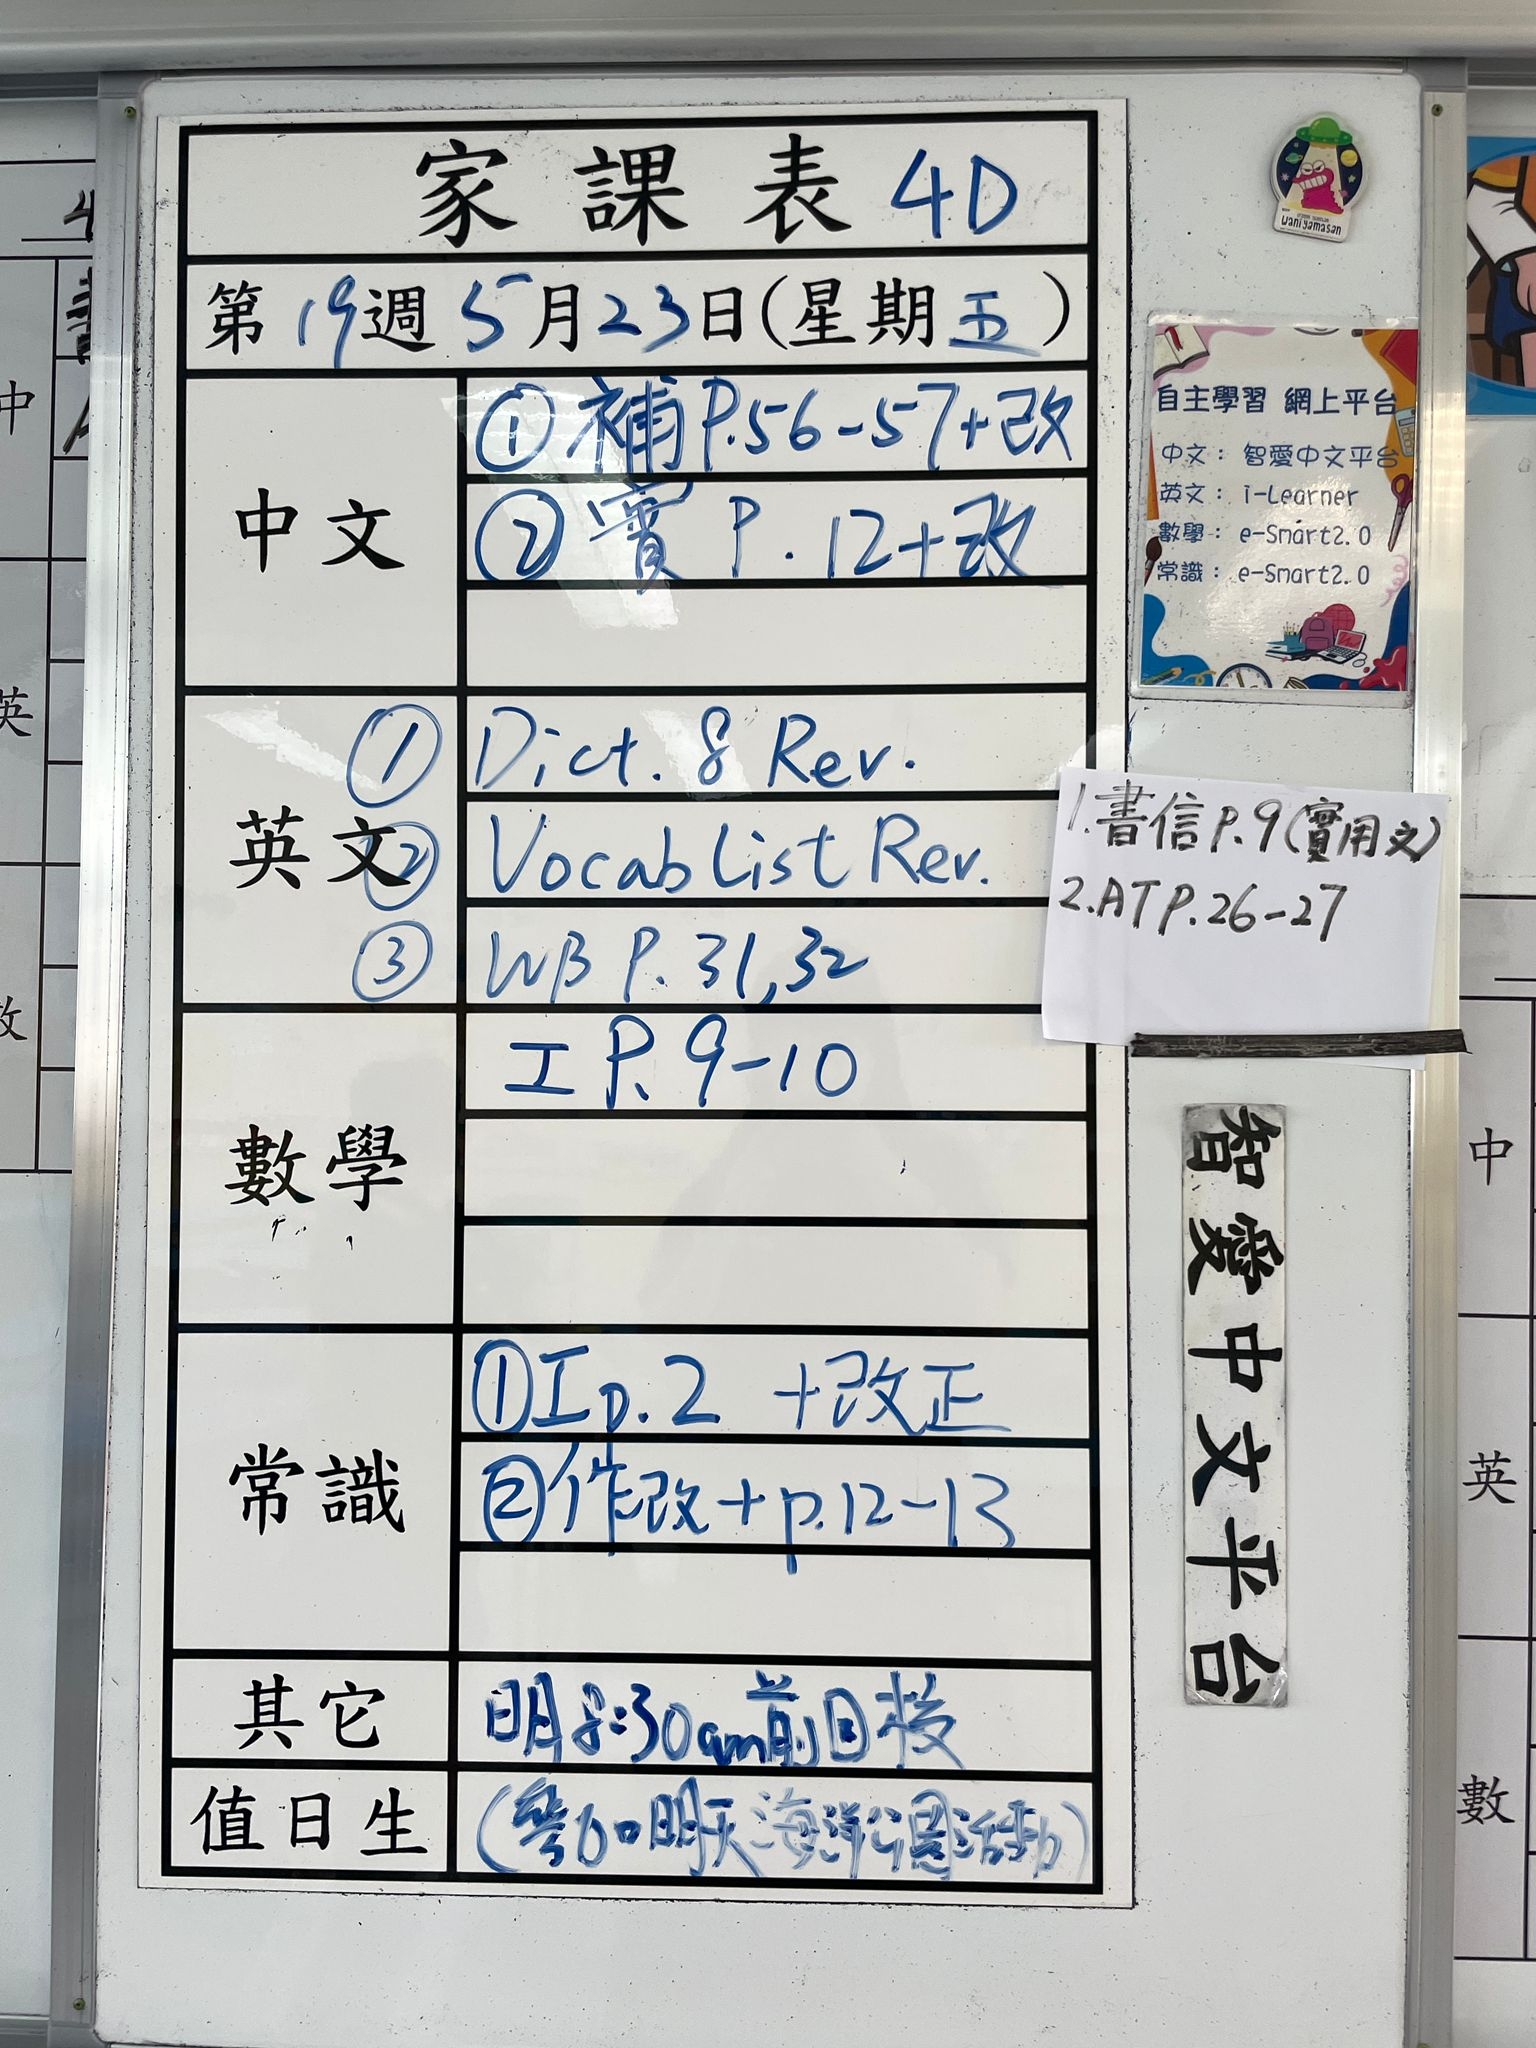 家課表 4D
第19週 5月23日(星期五)
中文
① 補P.56-57+改
② 實 P.12+改
英文
① Dict. 8 Rev.
② Vocab List Rev.
③ WB P.31,32
數學
工 P.9-10
常識
① 工p.2 +改正
② 作改+p.12-13
其它
明8:30am前回校
值日生
(參加明天海洋公園活動)
waniyamasan
自主學習 網上平台
中文: 智愛中文平台
英文: i-Learner
數學: e-Smart2.0
常識: e-Smart2.0
1.書信P.9(實用文)
2.AT P.26-27
智愛中文平台
中
英
數
中
英
數